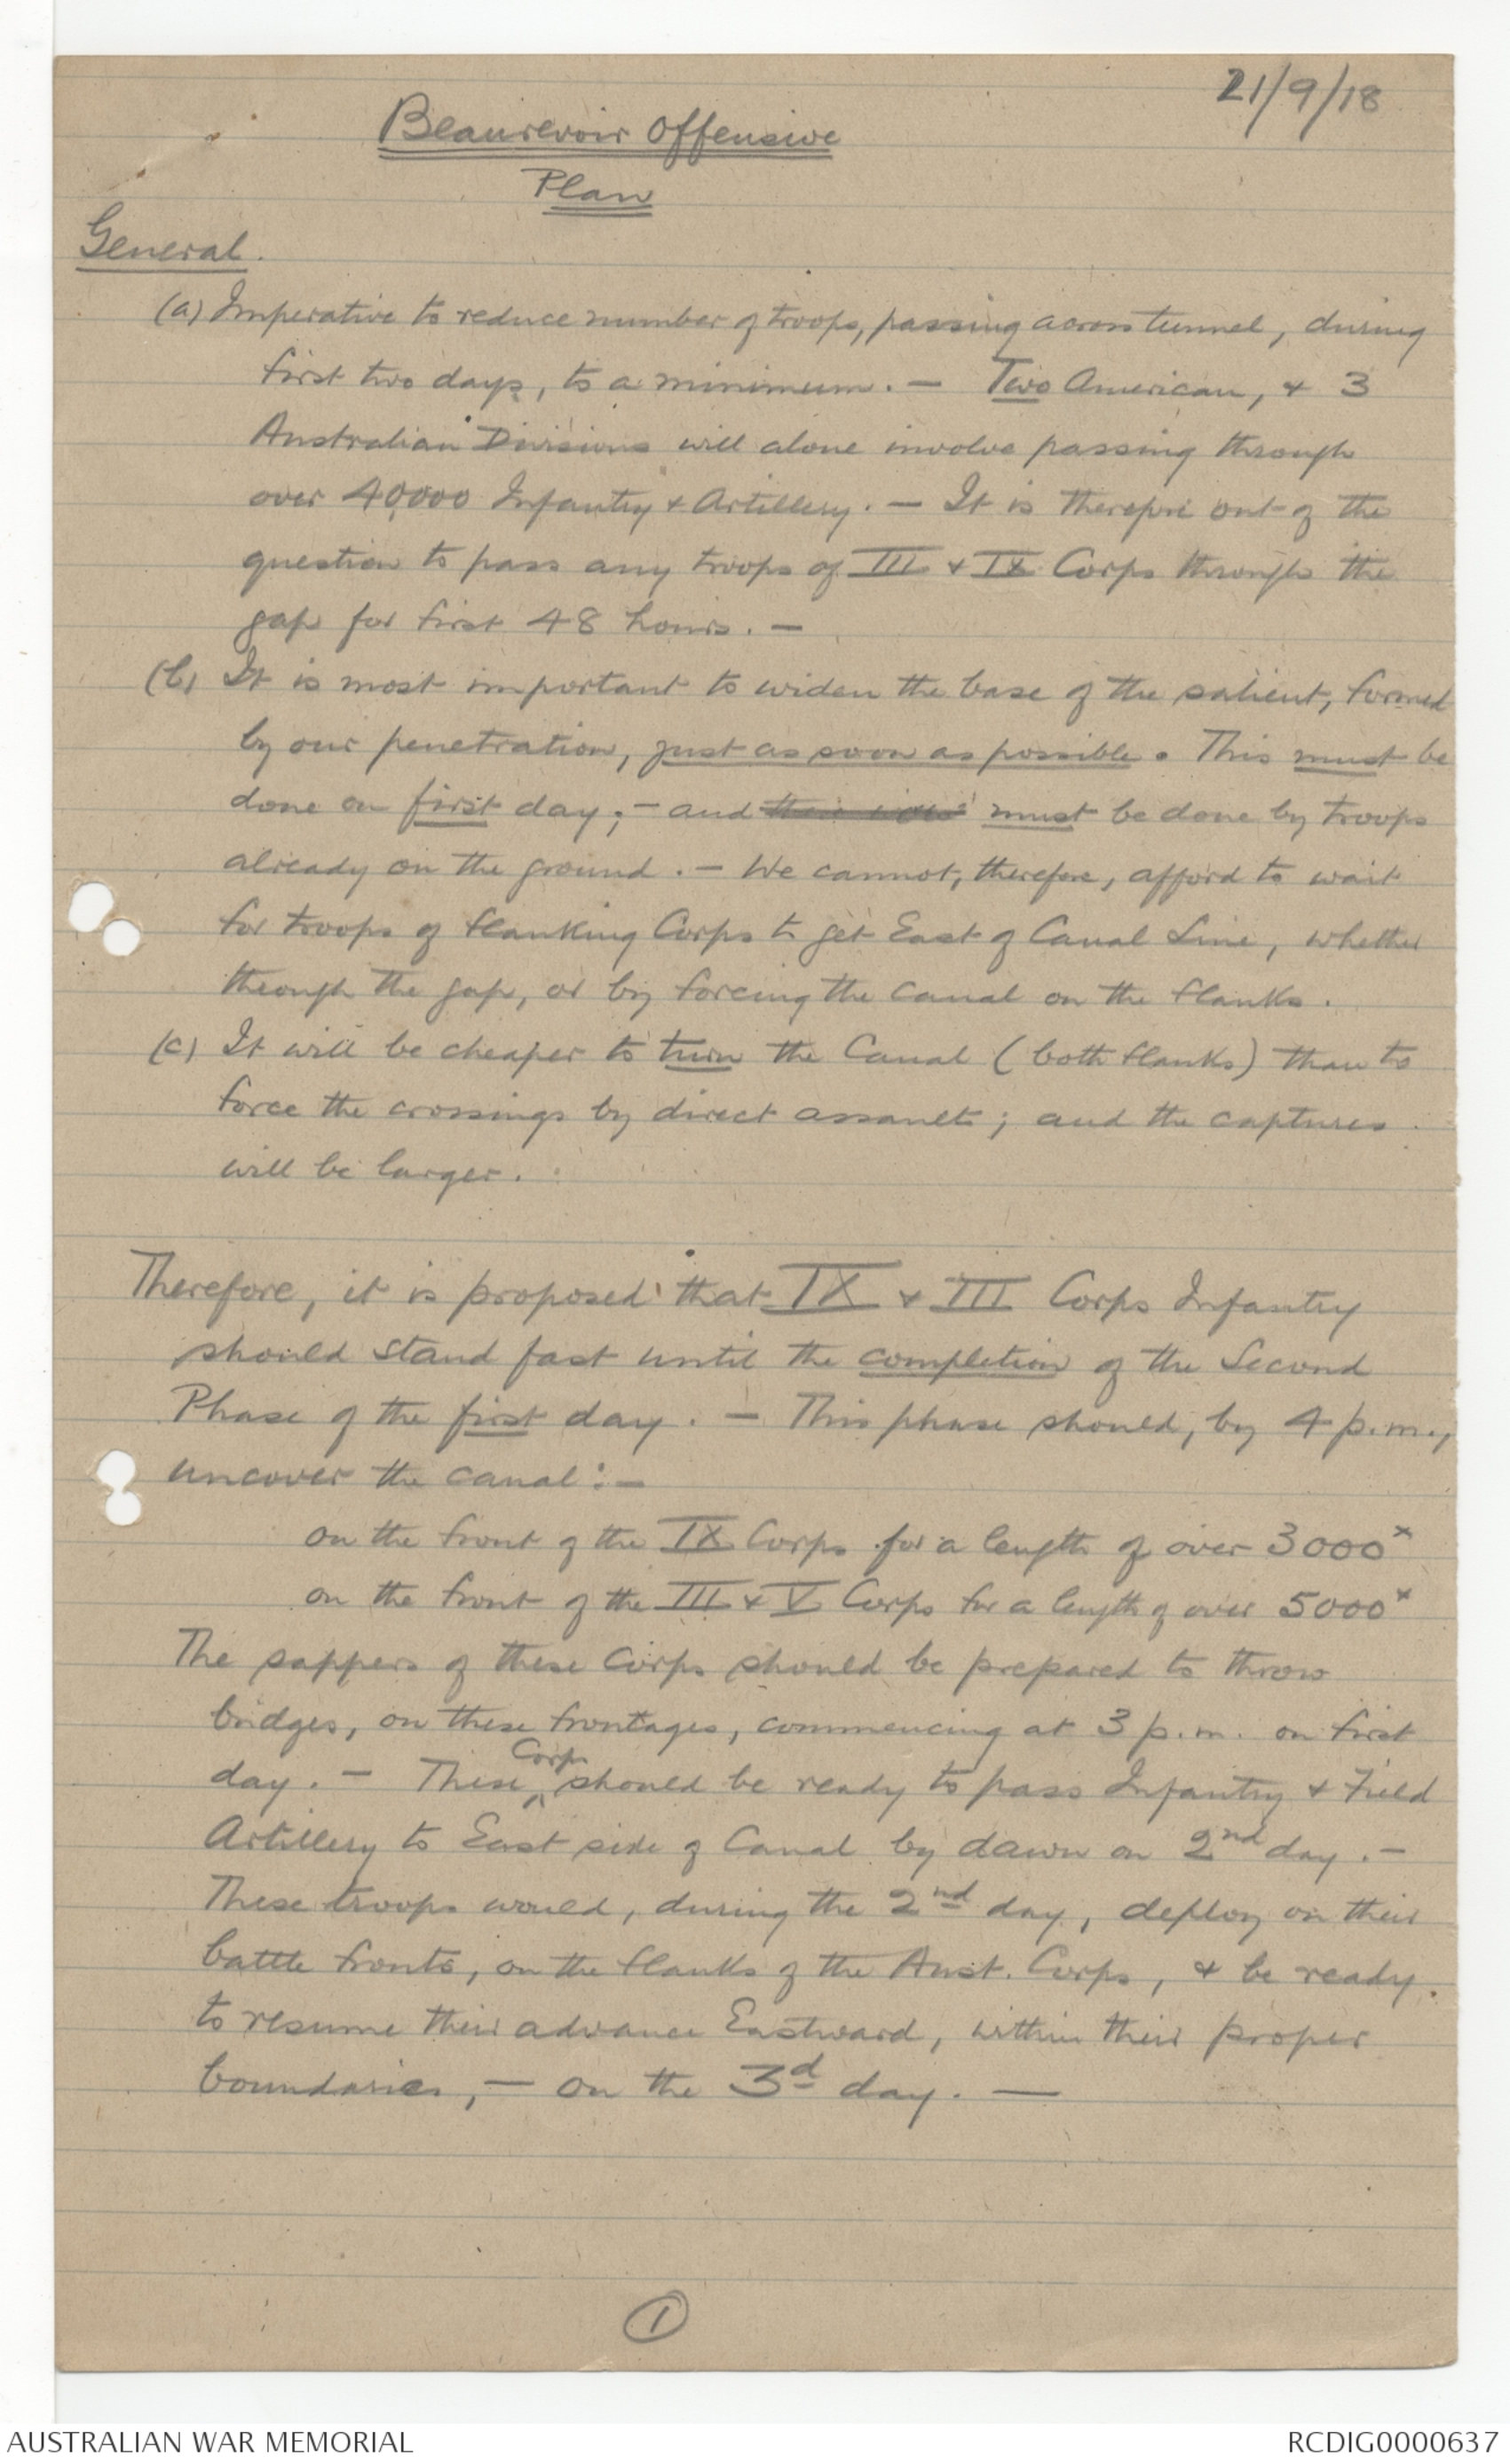 21/9/18
Beaurevoir Offensive
Plan
General.
(a) Imperative to reduce number of troops, passing across tunnel, during
first two days, to a minimum. — Two American, & 3
Australian Divisions will alone involve passing through
over 40,000 Infantry & Artillery. — It is therefore out of the
question to pass any troops of III & IX Corps through the
gap for first 48 hours. —
(b) It is most important to widen the base of the salient, formed
by our penetration, just as soon as possible. This must be
done on first day; — and must be done by troops
already on the ground. — We cannot, therefore, afford to wait
for troops of flanking Corps to get East of Canal Line, whether
through the gap, or by forcing the canal on the flanks.
(c) It will be cheaper to turn the Canal (both flanks) than to
force the crossings by direct assault; and the captures
will be larger.
Therefore, it is proposed that IX & III Corps Infantry
should stand fast until the completion of the Second
Phase of the first day. — This phase should, by 4 p.m.,
uncover the canal:—
on the front of the IX Corps for a length of over 3000x
on the front of the III & V Corps for a length of over 5000x
The sappers of these Corps should be prepared to throw
bridges, on these frontages, commencing at 3 p.m. on first
day. — These Corps should be ready to pass Infantry & Field
Artillery to East side of Canal by dawn on 2nd day. —
These troops would, during the 2nd day, deploy on their
battle fronts, on the flanks of the Aust. Corps, & be ready
to resume their advance Eastward, within their proper
boundaries, — on the 3d day. —
1
AUSTRALIAN WAR MEMORIAL
RCDIG0000637